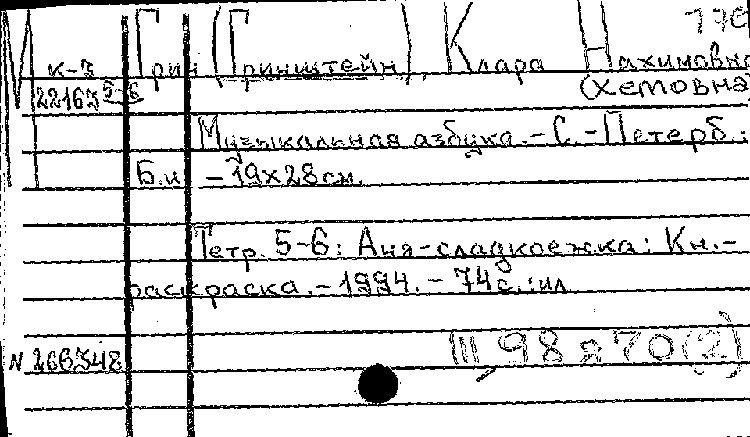 М к-3 Грин (Гринштейн), Клара Нахимовна
22163 5-6 (Хетовна)
Музыкальная азбука. - С.-Петерб.:
Б.и. - 19х28см.
Тетр. 5-6: Аня-сладкоежка: Кн.-
раскраска. - 1994. - 74с.: ил
N 266348 III, 98 я 70(2)